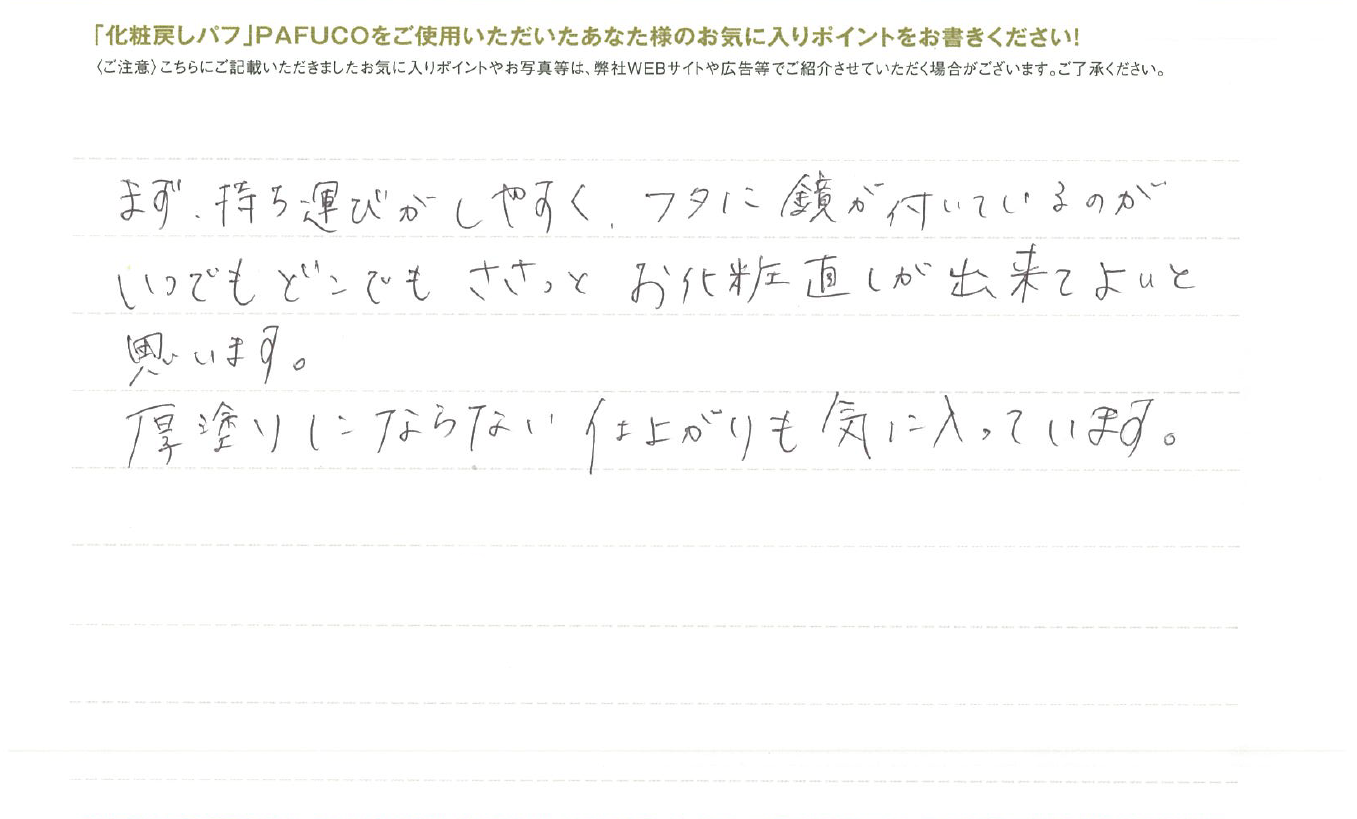 「化粧戻しパフ」PAFUCOをご使用いただいたあなた様のお気に入りポイントをお書きください!
〈ご注意〉こちらにご記載いただきましたお気に入りポイントやお写真等は、弊社WEBサイトや広告等でご紹介させていただく場合がございます。ご了承ください。
まず、持ち運びがしやすく、フタに鏡が付いているのが
いつでもどこでもささっとお化粧直しが出来てよいと
思います。
厚塗りにならない仕上がりも気に入っています。